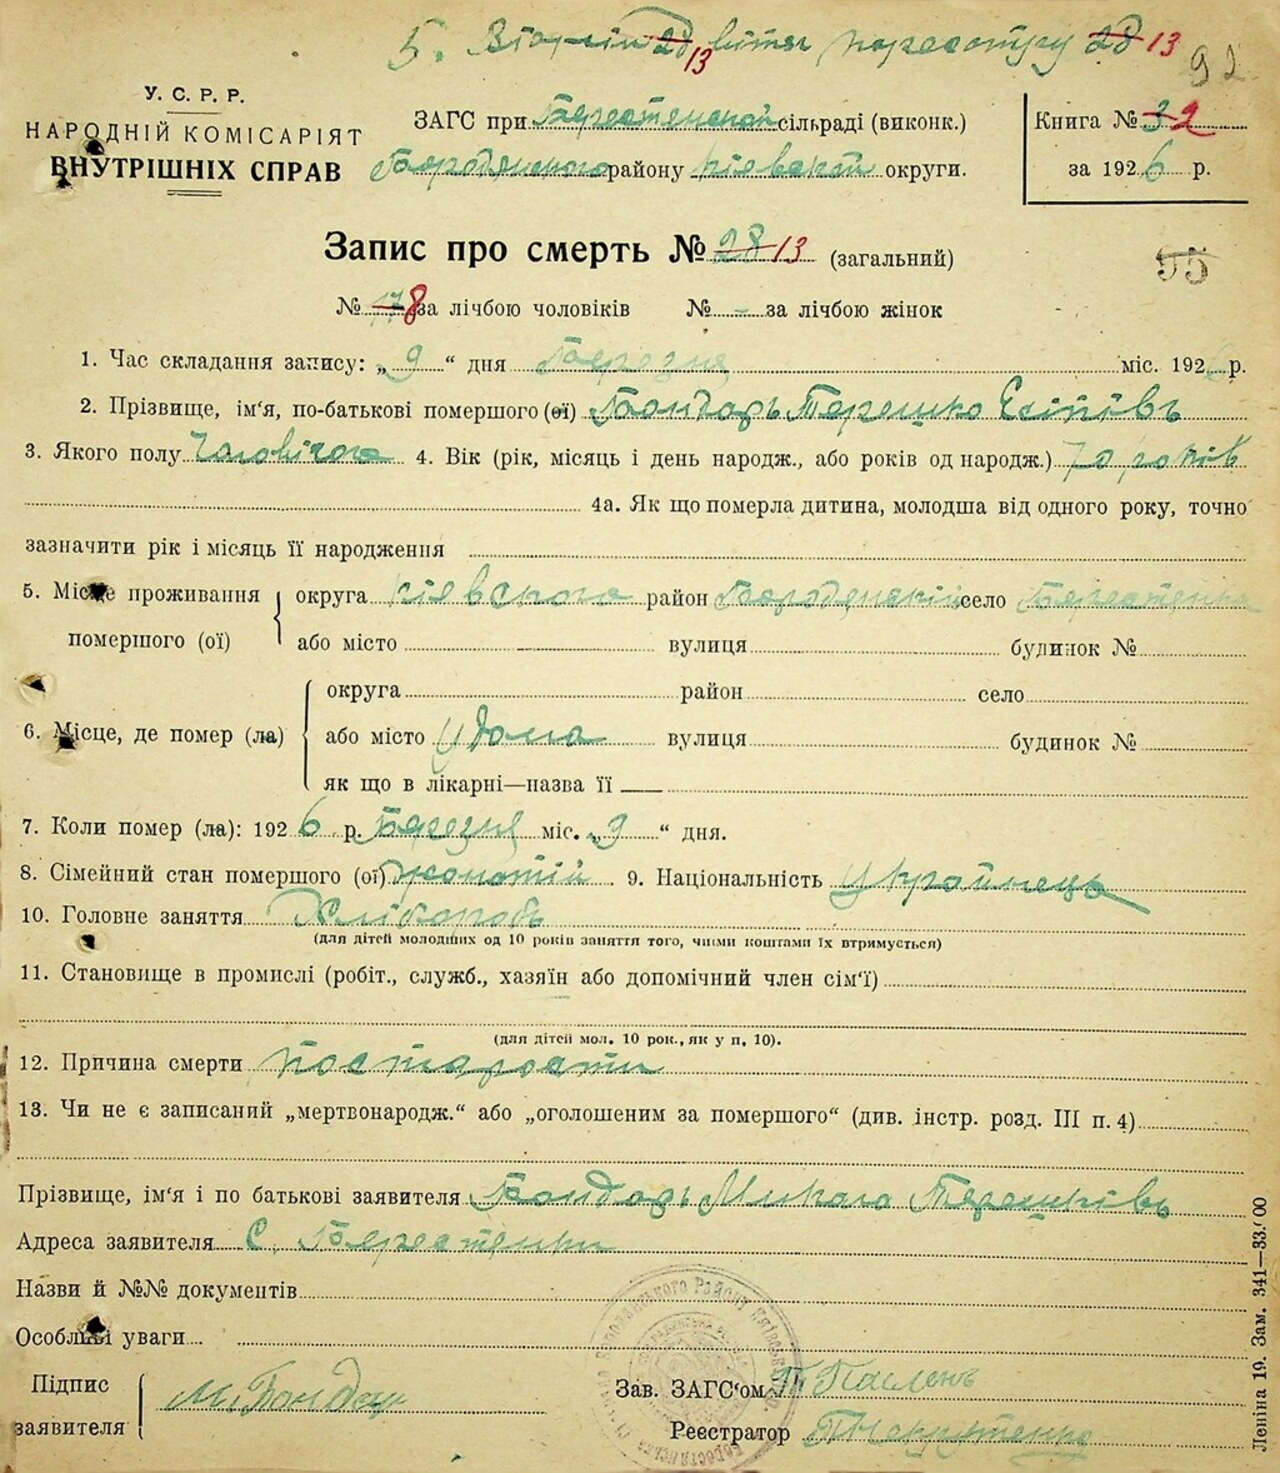 5. Віднін 28 13 витяг пореєстру 28 13
92
У. С. Р. Р.
НАРОДНІЙ КОМІСАРІЯТ
ВНУТРІШНІХ СПРАВ
ЗАГС при Берестенской сільраді (виконк.)
Бородянского району Київскои округи.
Книга № 3 2
за 1926 р.
Запис про смерть № 28 13 (загальний)
95
№ 17 8 за лічбою чоловіків № - за лічбою жінок
1. Час складання запису: „ 9 “ дня Березня міс. 1926 р.
2. Прізвище, ім'я, по-батькові помершого (ої) Бондарь Терешко Єсіпівь
3. Якого полу Чоловічого 4. Вік (рік, місяць і день народж., або років од народж.) 70 років
4а. Як що померла дитина, молодша від одного року, точно
зазначити рік і місяць її народження
5. Місце проживання помершого (ої) округа Київского район Бородянский село Берестянка
або місто вулиця будинок №
6. Місце, де помер (ла) округа район село
або місто У дома вулиця будинок №
як що в лікарні—назва її
7. Коли помер (ла): 1926 р. Березня міс. „ 9 “ дня.
8. Сімейний стан помершого (ої) жонатій 9. Національність Українець
10. Головне заняття Хлібороб
(для дітей молодших од 10 років заняття того, чиїми коштами їх втримується)
11. Становище в промислі (робіт., служб., хазяїн або допомічний член сім'ї)
(для дітей мол. 10 рок., як у п. 10).
12. Причина смерти По старости
13. Чи не є записаний „мертвонародж.“ або „оголошеним за помершого“ (див. інстр. розд. III п. 4)
Прізвище, ім'я і по батькові заявителя Бондарь Микола Терешківь
Адреса заявителя С. Берестянки
Назви й №№ документів
Особливі уваги
Підпис заявителя М. Бондар
Зав. ЗАГС'ом
Реєстратор
Леніна 19. Зам. 341—33.000